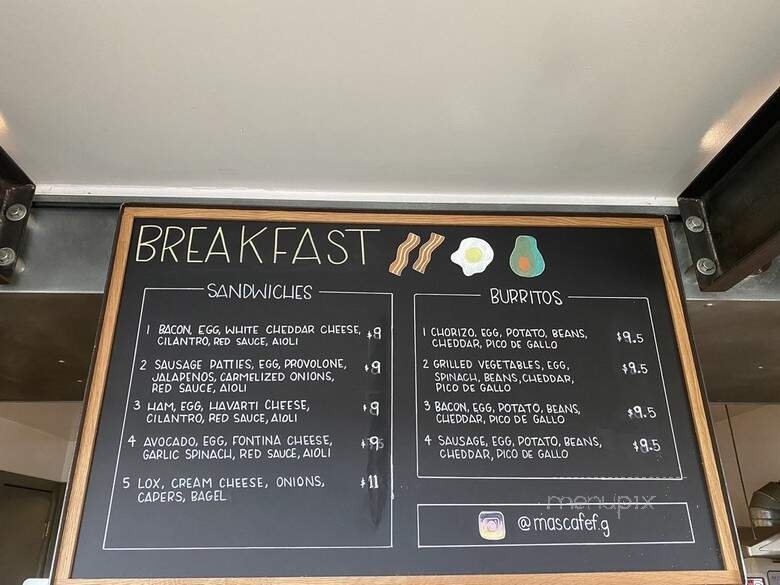 BREAKFAST
SANDWICHES
1 BACON, EGG, WHITE CHEDDAR CHEESE, $9
CILANTRO, RED SAUCE, AIOLI
2 SAUSAGE PATTIES, EGG, PROVOLONE, $9
JALAPENOS, CARMELIZED ONIONS,
RED SAUCE, AIOLI
3 HAM, EGG, HAVARTI CHEESE, $9
CILANTRO, RED SAUCE, AIOLI
4 AVOCADO, EGG, FONTINA CHEESE,
GARLIC SPINACH, RED SAUCE, AIOLI
5 LOX, CREAM CHEESE, ONIONS, $11
CAPERS, BAGEL
BURRITOS
1 CHORIZO, EGG, POTATO, BEANS, $9.5
CHEDDAR, PICO DE GALLO
2 GRILLED VEGETABLES, EGG, $9.5
SPINACH, BEANS, CHEDDAR,
PICO DE GALLO
3 BACON, EGG, POTATO, BEANS, $9.5
CHEDDAR, PICO DE GALLO
4 SAUSAGE, EGG, POTATO, BEANS, $9.5
CHEDDAR, PICO DE GALLO
menupix
@mascafef.g